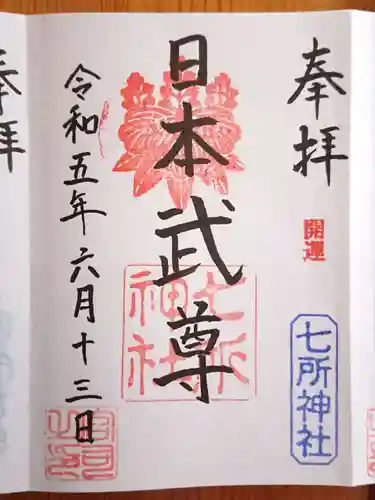 奉拝
開運
七所神社
日本武尊
七所
神社
令和五年六月十三日
宮司
之印
奉拝